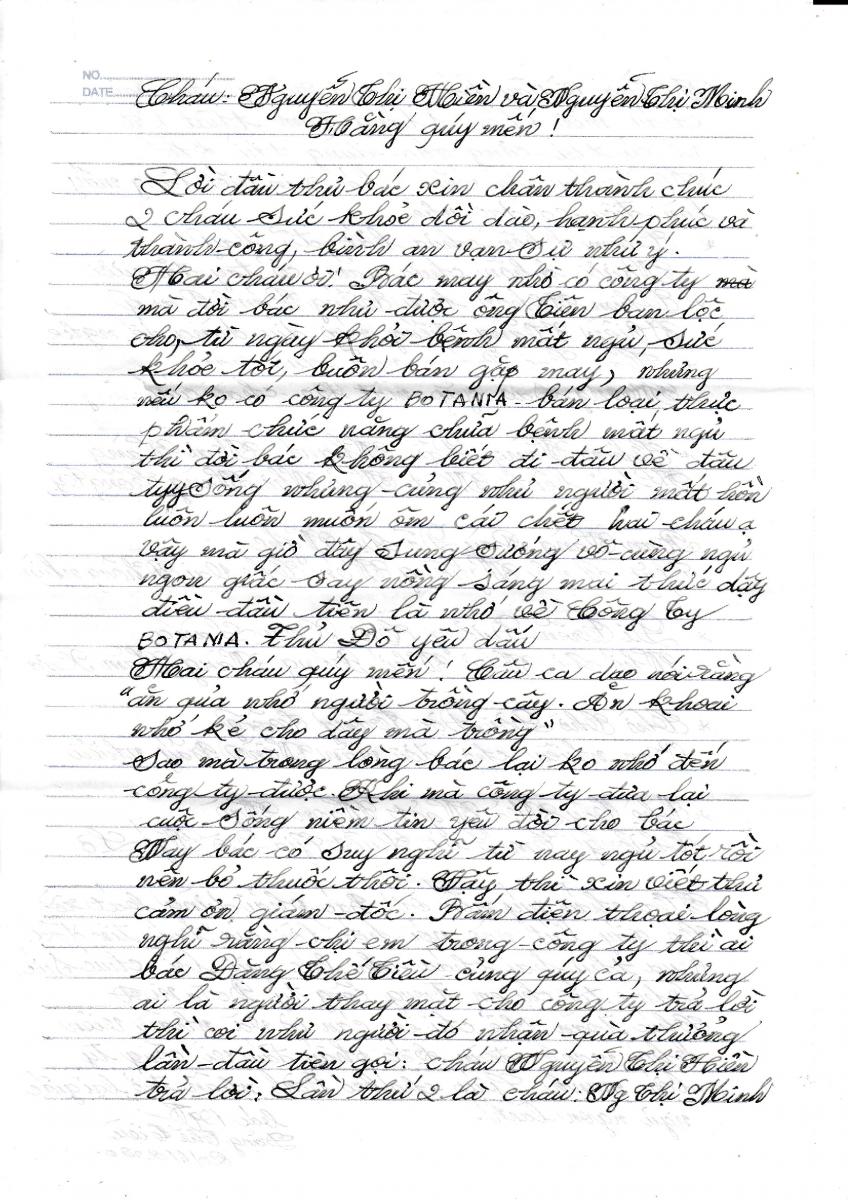 NO.
DATE
Cháu: Nguyễn Thị Hiền và Nguyễn Thị Minh
Hằng qúy mến!
Lời đầu thư bác xin chân thành chúc
2 cháu sức khỏe dồi dào, hạnh phúc và
thành-công, bình an vạn sự như ý.
Hai cháu ơi! Bác may nhờ có công ty mà
mà đời bác như-được ông Tiên ban lộc
cho, từ ngày khỏi bệnh mất ngủ, sức
khỏe tốt, buôn bán gặp may, nhưng
nếu ko có công ty BOTANIA- bán loại thực
phẩm chức năng chữa bệnh mất ngủ
thì đời bác không biết đi-đâu về đâu
tuy sống nhưng-cũng như người mất hồn
luôn luôn muốn ôm cái chết hai cháu ạ
vậy mà giờ đây sung sướng vô-cùng ngủ
ngon giấc say nồng sáng mai thức dậy
điều-đầu tiên là nhớ về Công ty
BOTANIA. Thủ Đô yêu dấu
Hai cháu qúy mến! Câu ca dao nói rằng
"ăn qủa nhớ người trồng cây. Ăn khoai
nhớ kẻ cho dây mà trồng"
Sao mà trong lòng bác lại ko nhớ đến
công ty-được. Khi mà công ty-đưa lại
cuộc-sống niềm tin yêu đời-cho bác
Nay bác có suy nghĩ từ nay ngủ tốt rồi
nên bỏ thuốc thôi. Vậy thì xin viết thư
cảm ơn giám-đốc. Bấm điện thoại-lòng
nghĩ rằng chị em trong-công ty thì ai
bác Đặng Thế Tiều cũng qúy cả, nhưng
ai là người thay mặt cho công ty trả lời
thì coi như người-đó nhận-quà thưởng
lần-đầu tiên gọi: cháu Nguyễn Thị Hiền
trả lời: Lần thứ 2 là cháu: Ng Thị Minh